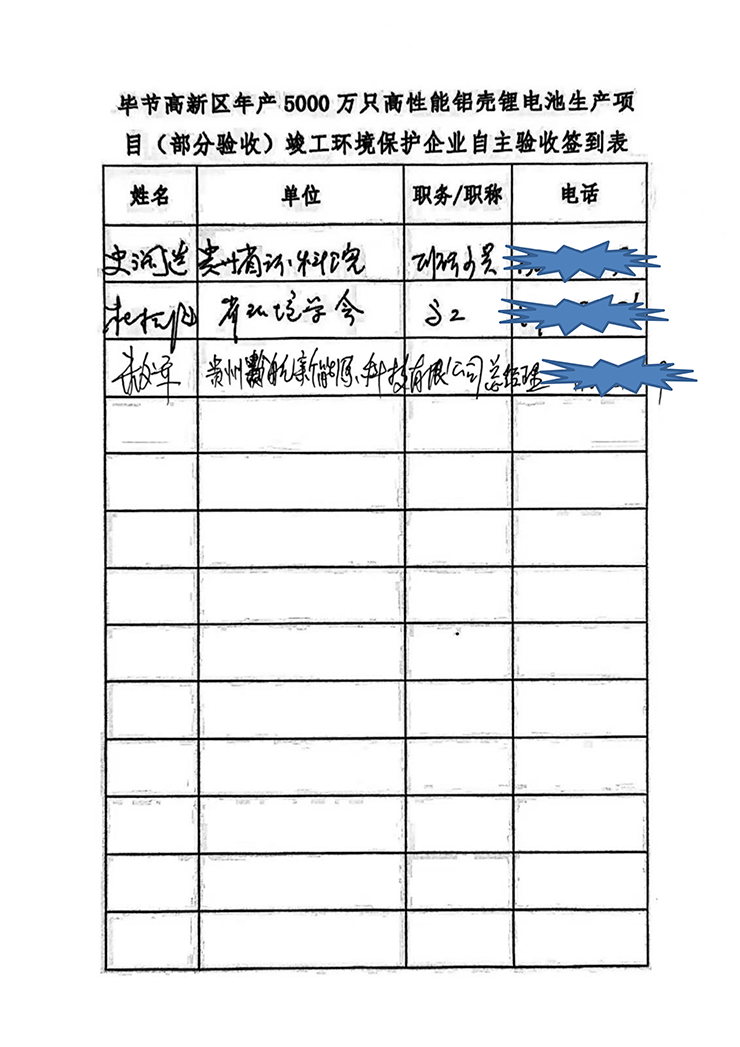 毕节高新区年产 5000 万只高性能铝壳锂电池生产项
目（部分验收）竣工环境保护企业自主验收签到表
姓名 单位 职务/职称 电话
贵州省环科院 副研究员
省环境学会 高工
贵州 航新能源科技有限公司 总经理